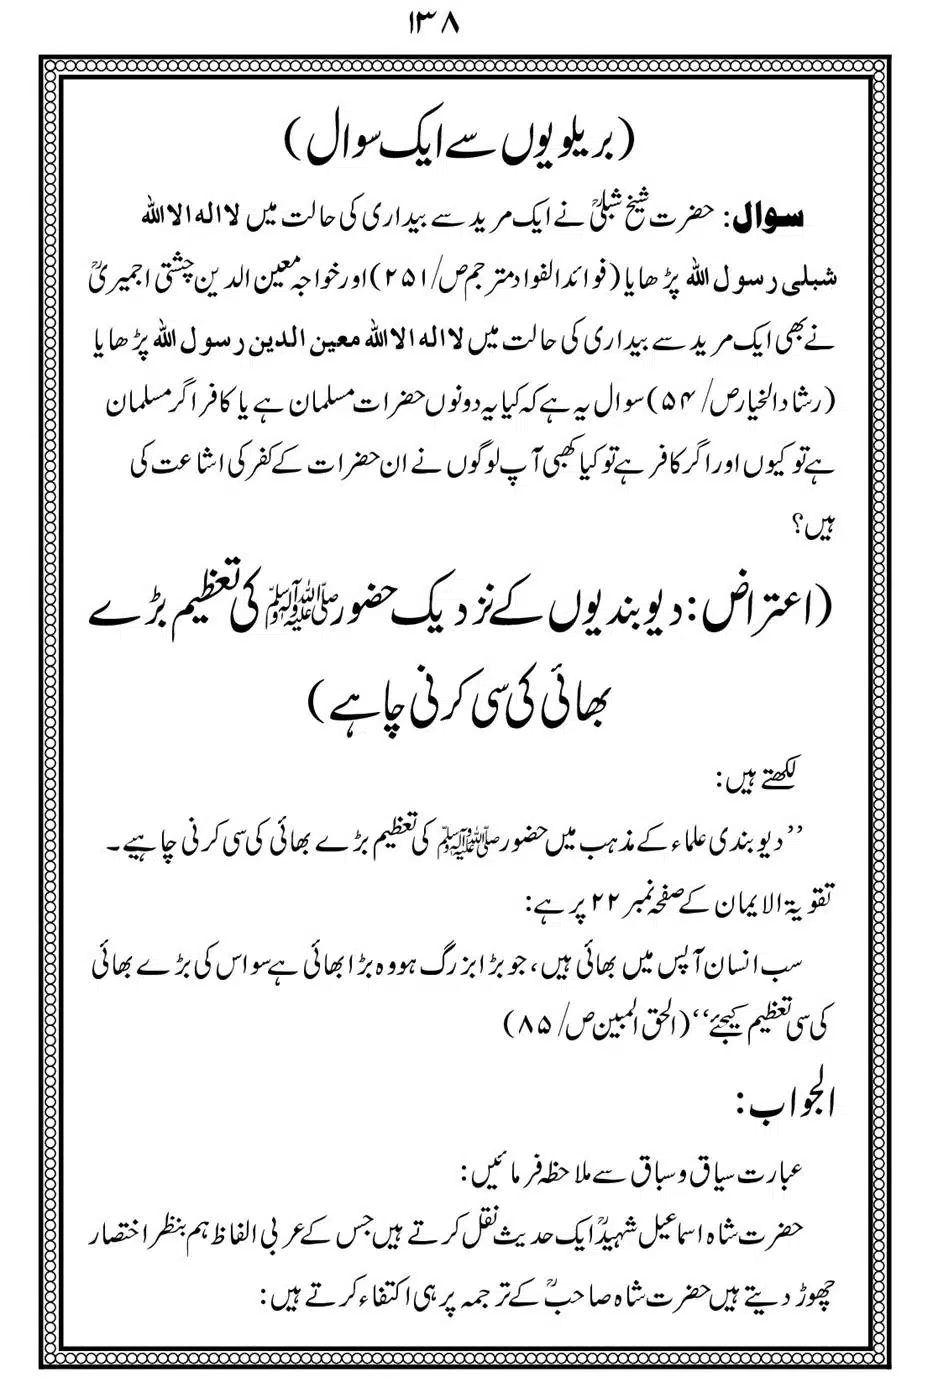 ۱۳۸
(بریلویوں سے ایک سوال)
سوال: حضرت شیخ شبلیؒ نے ایک مرید سے بیداری کی حالت میں لا الہ الا اللہ
شبلی رسول اللہ پڑھایا (فوائد الفواد مترجم ص/۲۵۱) اور خواجہ معین الدین چشتی اجمیریؒ
نے بھی ایک مرید سے بیداری کی حالت میں لا الہ الا اللہ معین الدین رسول اللہ پڑھایا
(رشاد الخیار ص/ ۵۴) سوال یہ ہے کہ کیا یہ دونوں حضرات مسلمان ہے یا کافر اگر مسلمان
ہے تو کیوں اور اگر کافر ہے تو کیا کبھی آپ لوگوں نے ان حضرات کے کفر کی اشاعت کی
ہیں؟
(اعتراض: دیوبندیوں کے نزدیک حضور ﷺ کی تعظیم بڑے
بھائی کی سی کرنی چاہے)
لکھتے ہیں:
’’دیوبندی علماء کے مذہب میں حضور ﷺ کی تعظیم بڑے بھائی کی سی کرنی چاہیے۔
تقویۃ الایمان کے صفحہ نمبر ۲۲ پر ہے:
سب انسان آپس میں بھائی ہیں، جو بڑا بزرگ ہو وہ بڑا بھائی ہے سو اس کی بڑے بھائی
کی سی تعظیم کیجئے‘‘ (الحق المبین ص/ ۸۵)
الجواب:
عبارت سیاق و سباق سے ملاحظہ فرمائیں:
حضرت شاہ اسماعیل شہیدؒ ایک حدیث نقل کرتے ہیں جس کے عربی الفاظ ہم بنظر اختصار
چھوڑ دیتے ہیں حضرت شاہ صاحبؒ کے ترجمہ پر ہی اکتفاء کرتے ہیں: